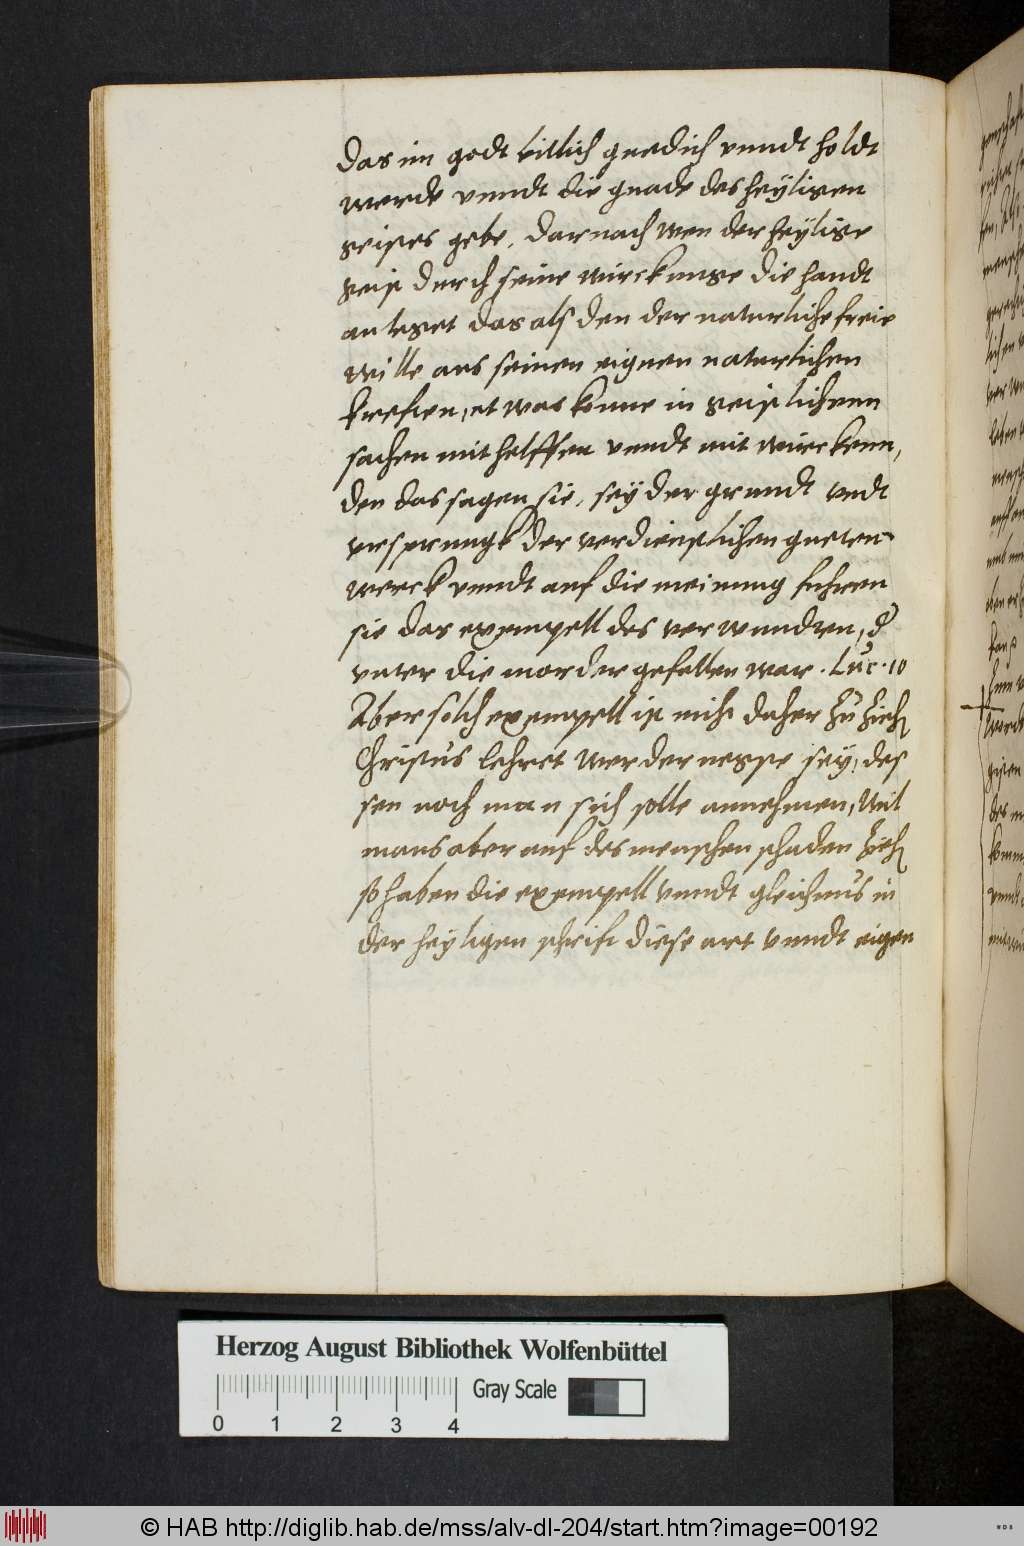 das im godt billich gnedich vnndt holdt
werde vnndt die gnade des heyligen
geistes gebe, darnach wen der heylige
geist durch seine wirckunge die handt
anleget das alß den der naturliche freie
wille aus seinen eignen naturlichen
kreften, etwas konne in geistlichenn
sachen mit helffen vnndt mit wirckenn,
den das sagen sie, sey der grundt vndt
vrsprungk der verdienstlichen gueten
werck vnndt auf die meinung fuhren
sie das exempell des verwundten, d
vnter die morder gefallen war. Luc. 10
Aber solch exempell ist nicht daher zu zieh
Christus lehret wer der negste sey, des
sen noch man sich solle annehmen, Weil
mans aber auf des menschen schaden zieh
so haben die exempell vnndt gleichnus in
der heyligen schrift diese art vnndt eigen
Herzog August Bibliothek Wolfenbüttel
Gray Scale
0 1 2 3 4
© HAB http://diglib.hab.de/mss/alv-dl-204/start.htm?image=00192